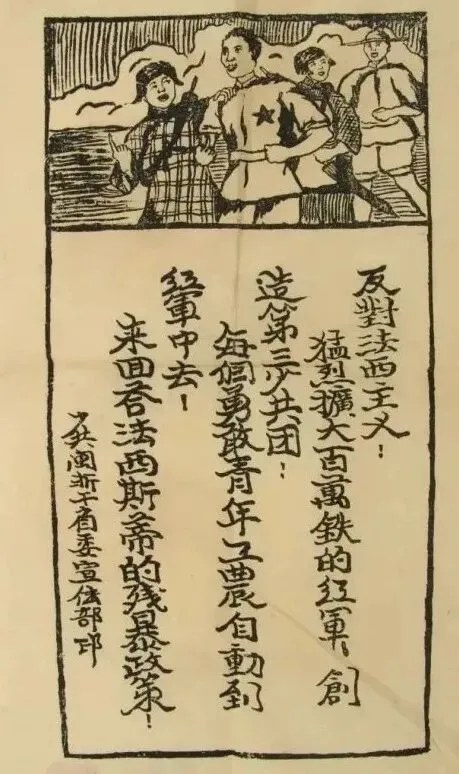 反對法西主义！
猛烈擴大百萬鉄的红軍！創
造第三少共团！
每個勇敢青年工農自動到
红軍中去！
来回答法西斯蒂的残暴政策！
少共闽浙干省委宣传部印